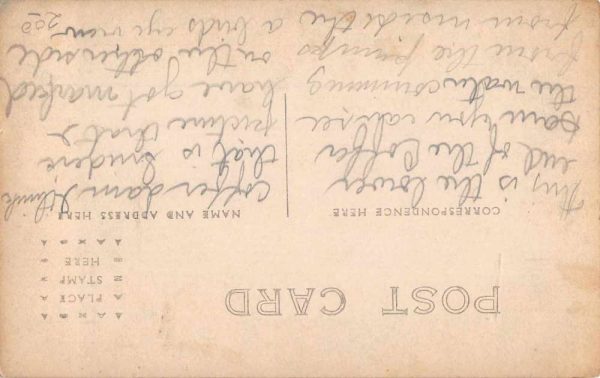 POST CARD
PLACE
STAMP
HERE
CORRESPONDENCE HERE
NAME AND ADDRESS HERE
This is the lower
end of the Coffer
Dam you can see
the water comming
from the pumps
from inside the
coffer dam I think
that is under
picture that I
have got marked
on the other side
a birds eye view
200